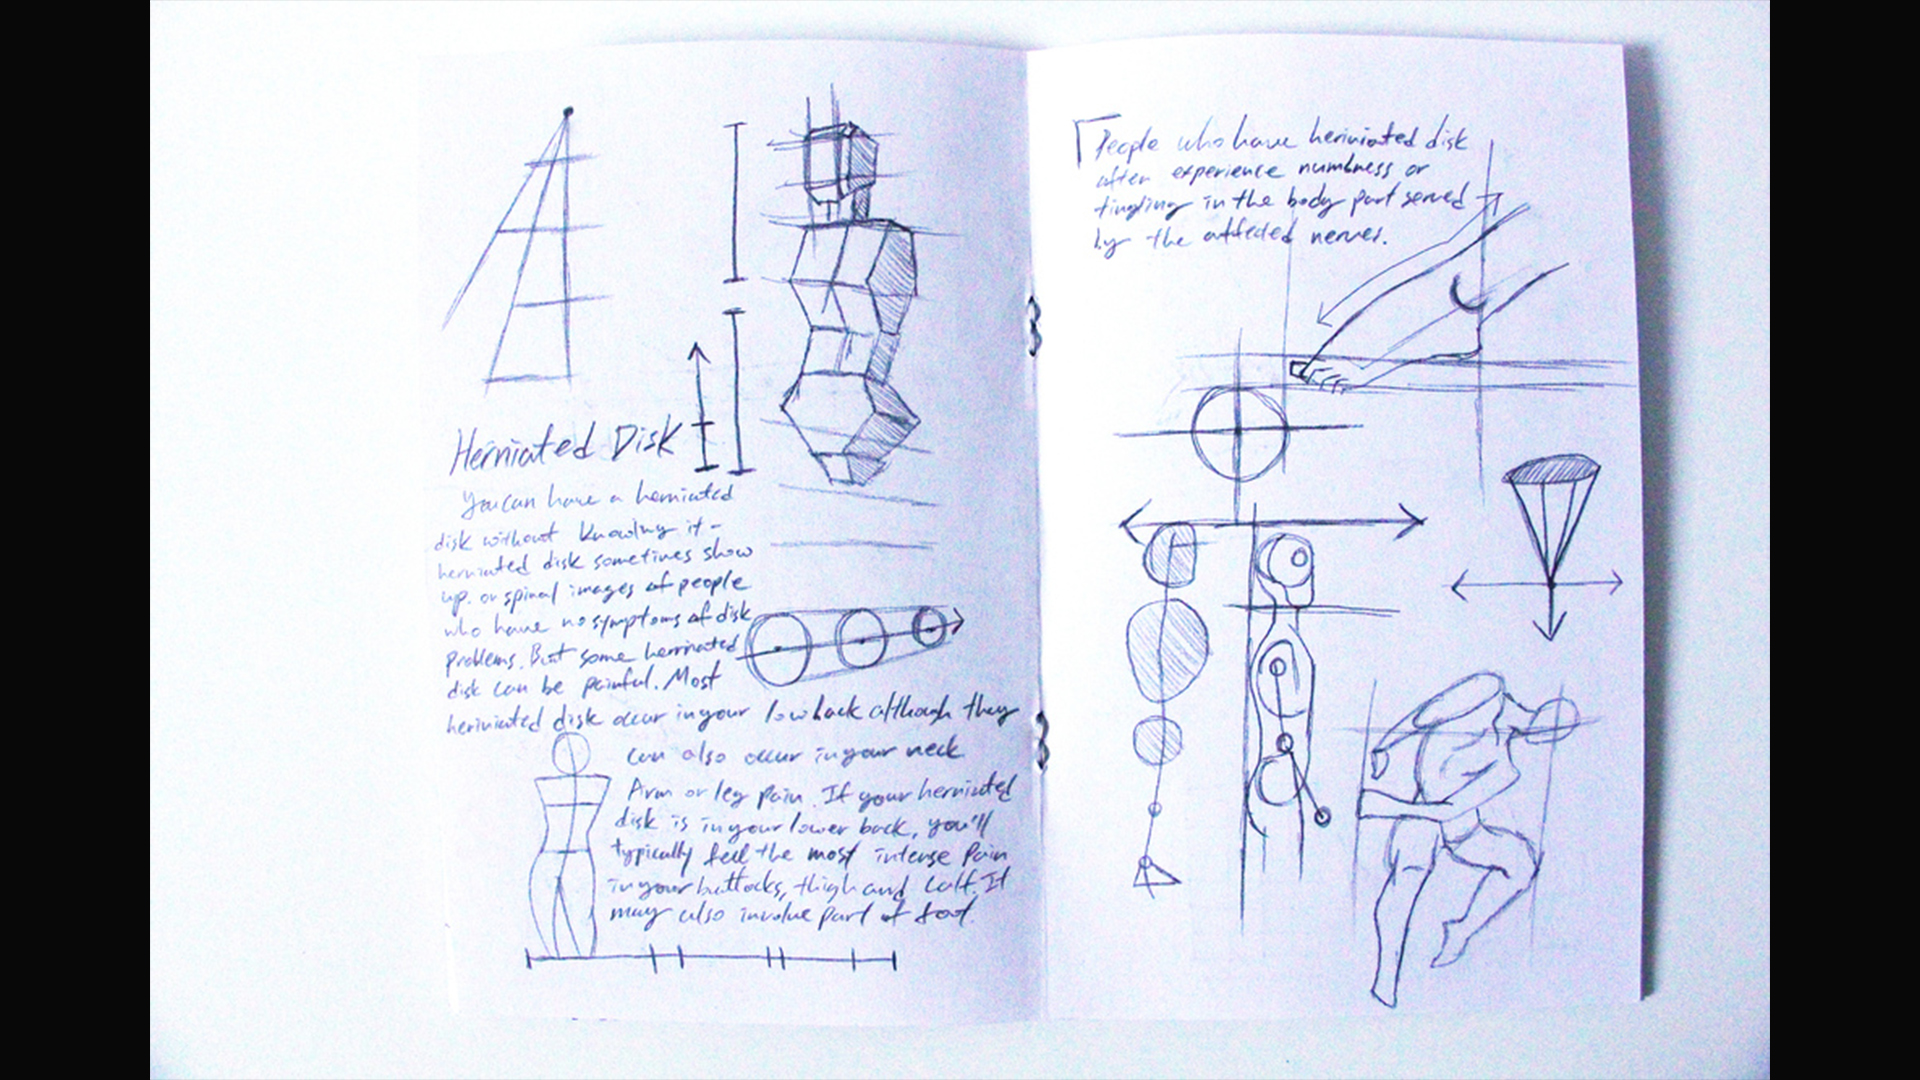 Herniated Disk
You can have a herniated
disk without knowing it -
herniated disk sometimes show
up. on spinal images of people
who have no symptoms of disk
problems. But some herniated
disk can be painful. Most
herniated disk occur in your low back although they
can also occur in your neck
Arm or leg pain. If your herniated
disk is in your lower back, you'll
typically feel the most intense pain
in your buttocks, thigh and calf. It
may also involve part of foot.
People who have herniated disk
often experience numbness or
tingling in the body part served
by the affected nerves.